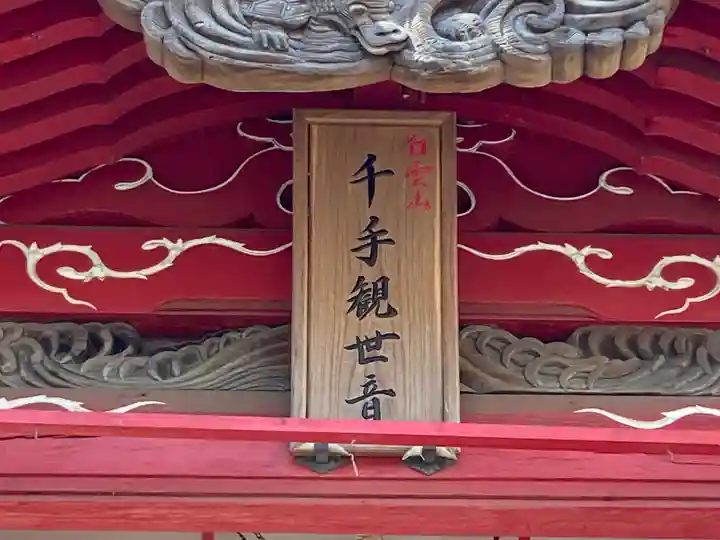 白雲山
千手観世音